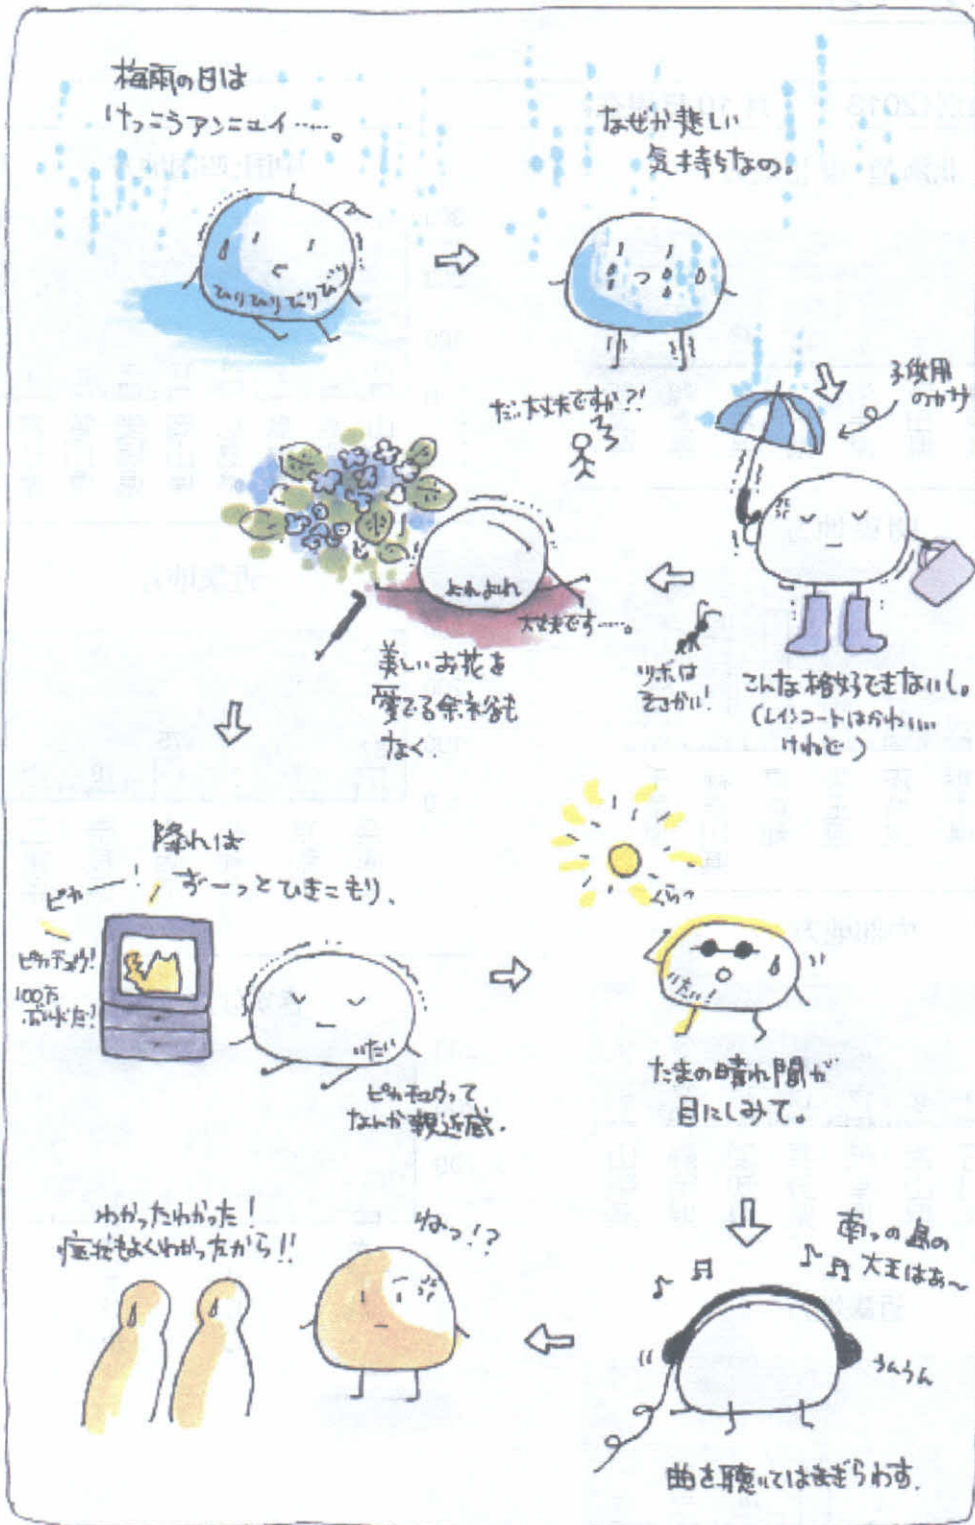 梅雨の日は
けっこうアンニュイ……。
びりびりびりびり
なぜか悲しい
気持ちなの。
子供用
のカサ
こんな格好できないし。
(レインコートはかわいい
けれど)
だ、大丈夫ですか?!
よれよれ
大丈夫です……。
ツボは
そこかい!
美しいお花を
愛でる余裕も
なく。
降れば
ずーっとひきこもり、
ピカー!
ピカチュウ!
100万
ボルトだ!
いたい
ピカチュウって
なんか親近感。
くらっ
いたい!
たまの晴れ間が
目にしみて。
南の島の
大王はぁ〜
うんうん
曲を聴いてはまぎらわす。
ねっ!?
わかったわかった!
症状もよくわかったから!!